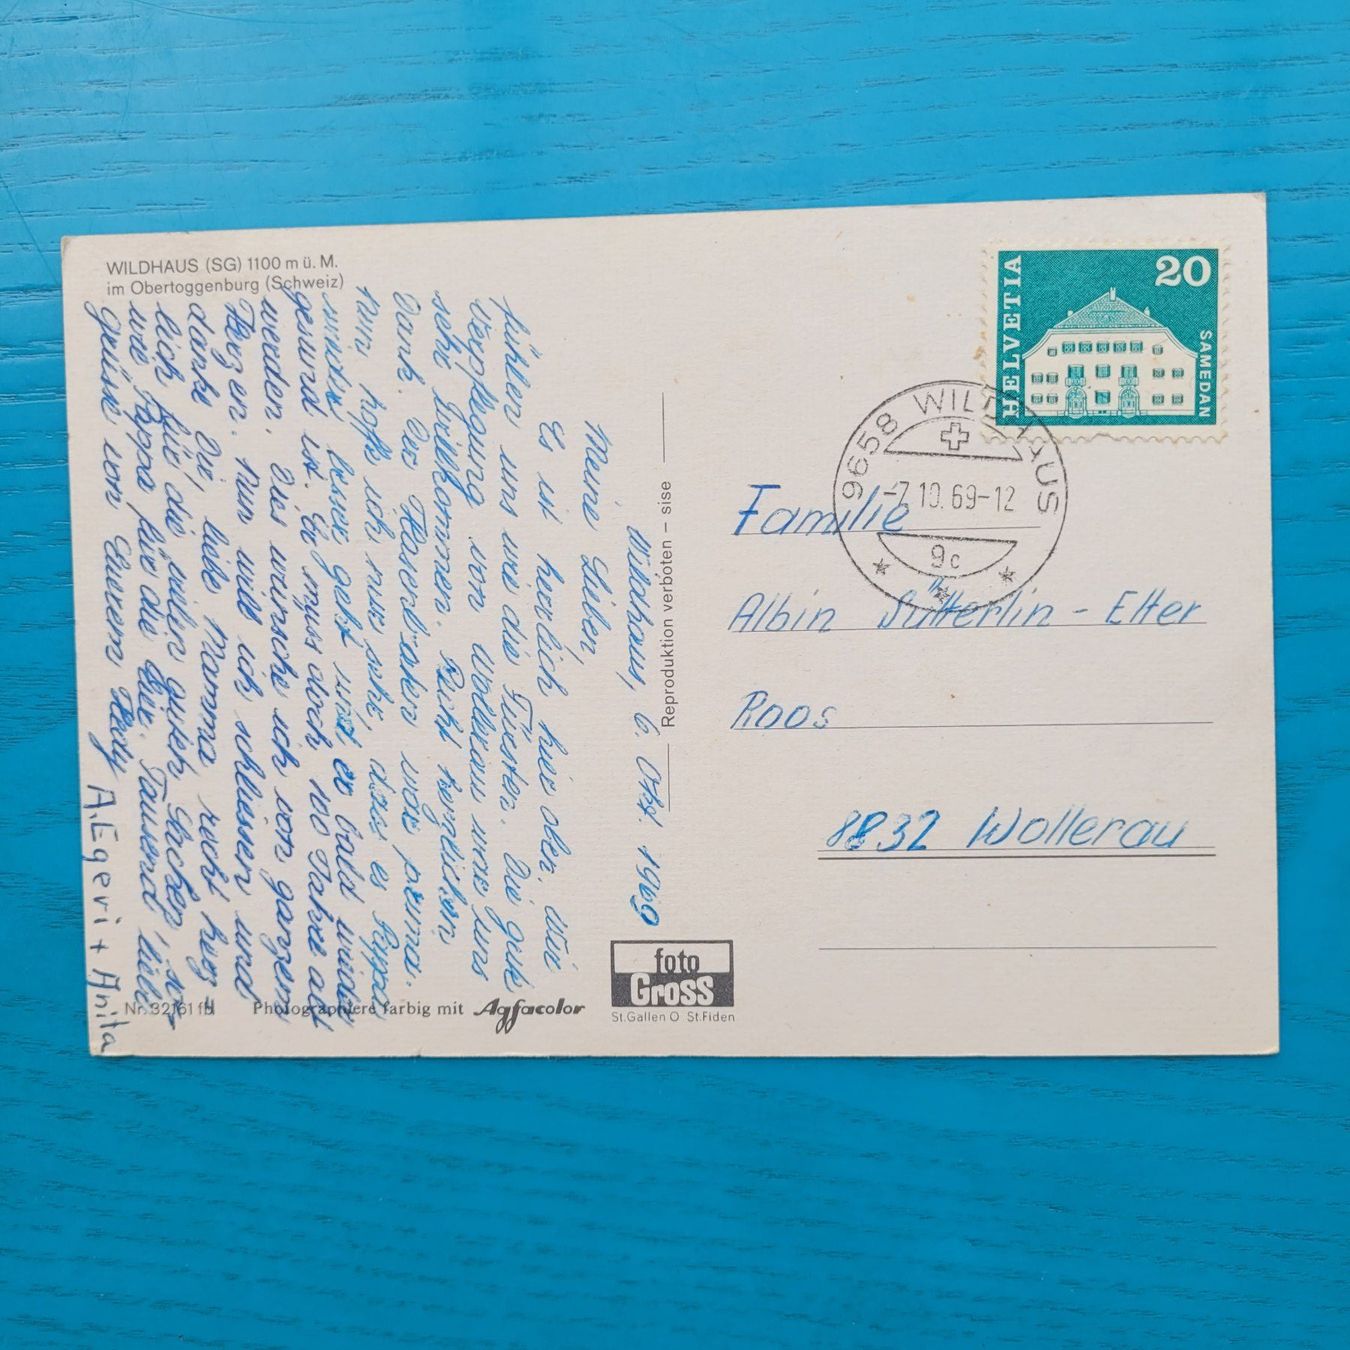 WILDHAUS (SG) 1100 m ü. M.
im Obertoggenburg (Schweiz)
Wildhaus, 6. Okt. 1969
Meine Lieben,
Es ist herrlich hier oben, wir
fühlen uns wie die Fürsten. Die gute
Verpflegung von Wollerau war uns
sehr willkommen. Recht herzlichen
Dank. Der Hasenbraten war prima.
Nun hoff ich nur sehr, dass es Pappi
wieder besser geht und er bald wieder
gesund ist. Er muss doch 100 Jahre alt
werden. Dies wünsche ich von ganzem
Herzen. Nun will ich schliessen und
danke Dir, liebe Mamma recht herz-
lich für die vielen guten Sachen, so-
wie Pappa für die Eier. Tausend liebe
Grüsse von Eurem Hedy
A. Egeri + Anita
Nr. 32161 fbl
Photographiere farbig mit Agfacolor
foto
Gross
St.Gallen O St.Fiden
Reproduktion verboten – sise
HELVETIA
20
SAMEDAN
9658 WILDHAUS
-7.10.69-12
9c
Familie
Albin Sütterlin - Elter
Roos
8832 Wollerau